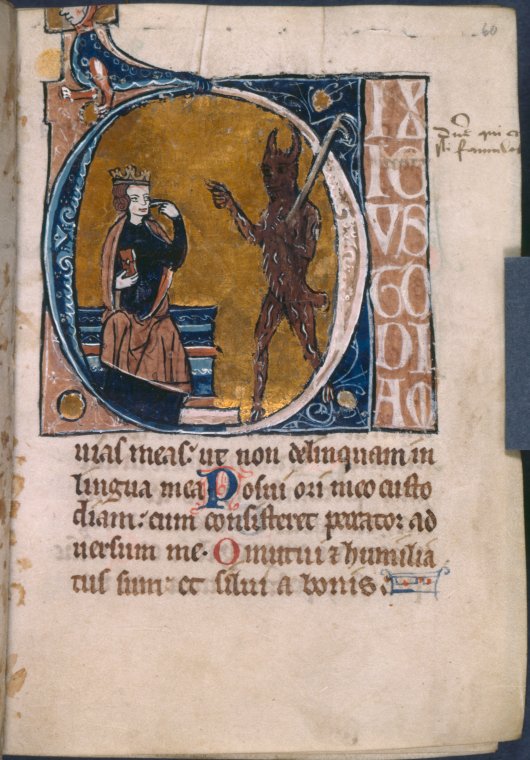 60
DIXI CVSTODIAM
uias meas: ut non delinquam in
lingua mea Posui ori meo custo
diam: cum consisteret peccator ad
uersum me. Omutui & humilia
tus sum: et silui a bonis.